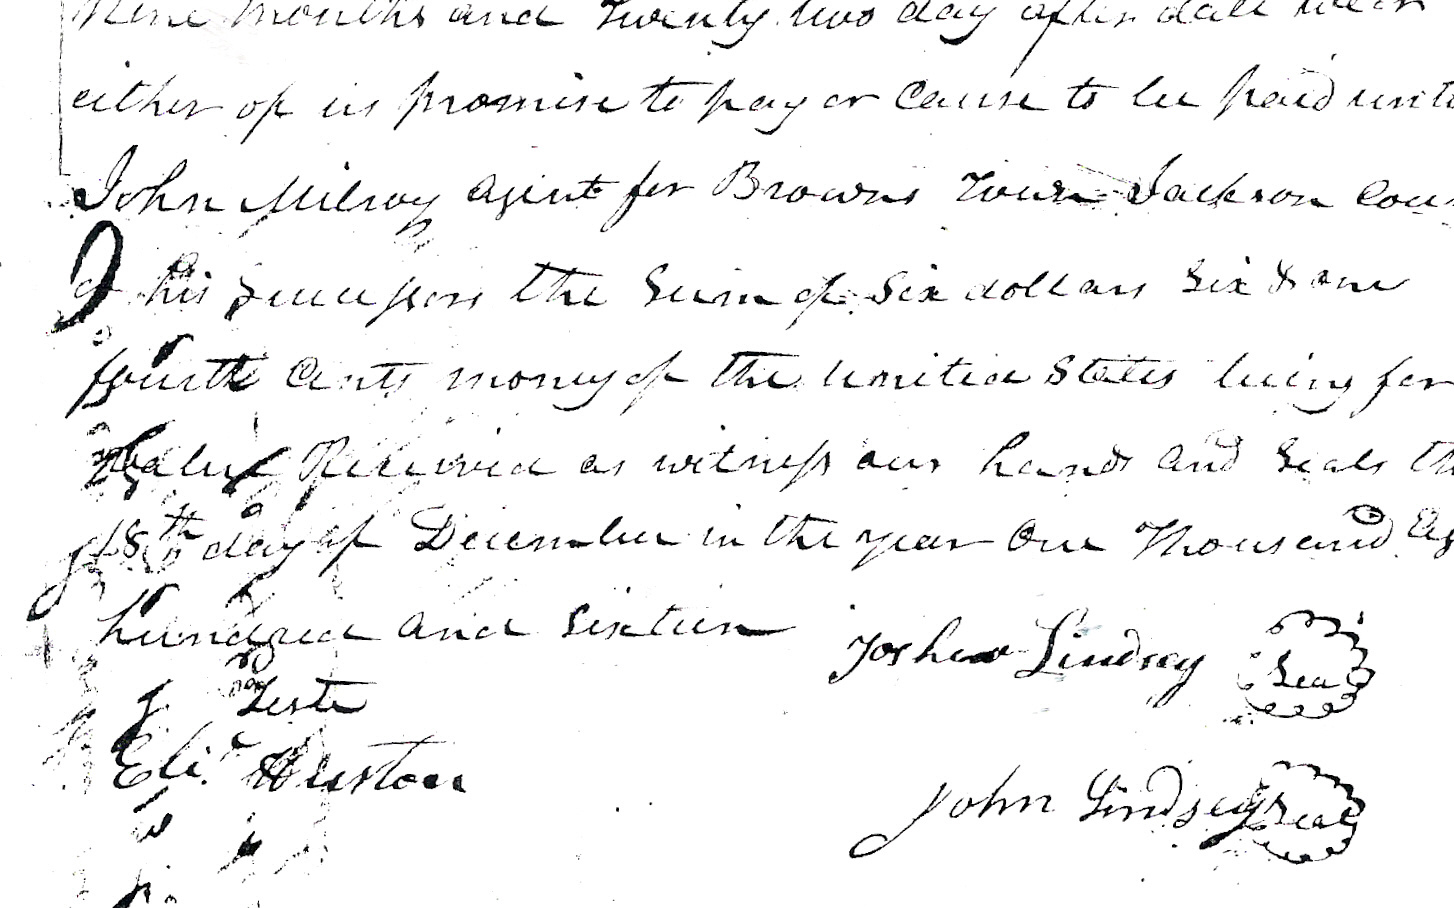 Nine months and Twenty two day after date we or
either of us promise to pay or cause to be paid unto
John Milroy agent for Browns Town Jackson Cou
or his Successors the Sum of Six dollars Six & one
fourth Cents money of the United States being for
Value Received as witness our hands and Seals th
18th day of December in the year One Thousand Eig
hundred and Sixteen
Joshua Lindsey Seal
Teste
Eli Huston
John Lindsey Seal